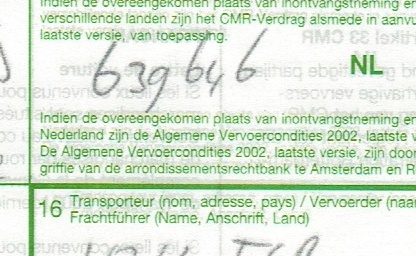 Indien de overeengekomen plaats van inontvangstneming en
verschillende landen zijn het CMR-Verdrag alsmede in aanvu
laatste versie, van toepassing.
639646
NL
Indien de overeengekomen plaats van inontvangstneming en
Nederland zijn de Algemene Vervoercondities 2002, laatste v
De Algemene Vervoercondities 2002, laatste versie, zijn door
griffie van de arrondissementsrechtbank te Amsterdam en R
16 Transporteur (nom, adresse, pays) / Vervoerder (naar
Frachtführer (Name, Anschrift, Land)